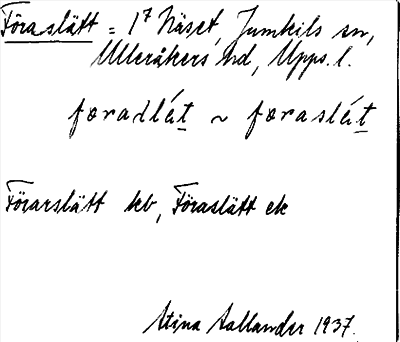 Föraslätt = 1⁷ Näset, Jumkils sn,
Ulleråkers hd, Upps. l.
føraslét ~ føraslét
Förarslätt kb, Föraslätt ek
Stina Aallander 1937.